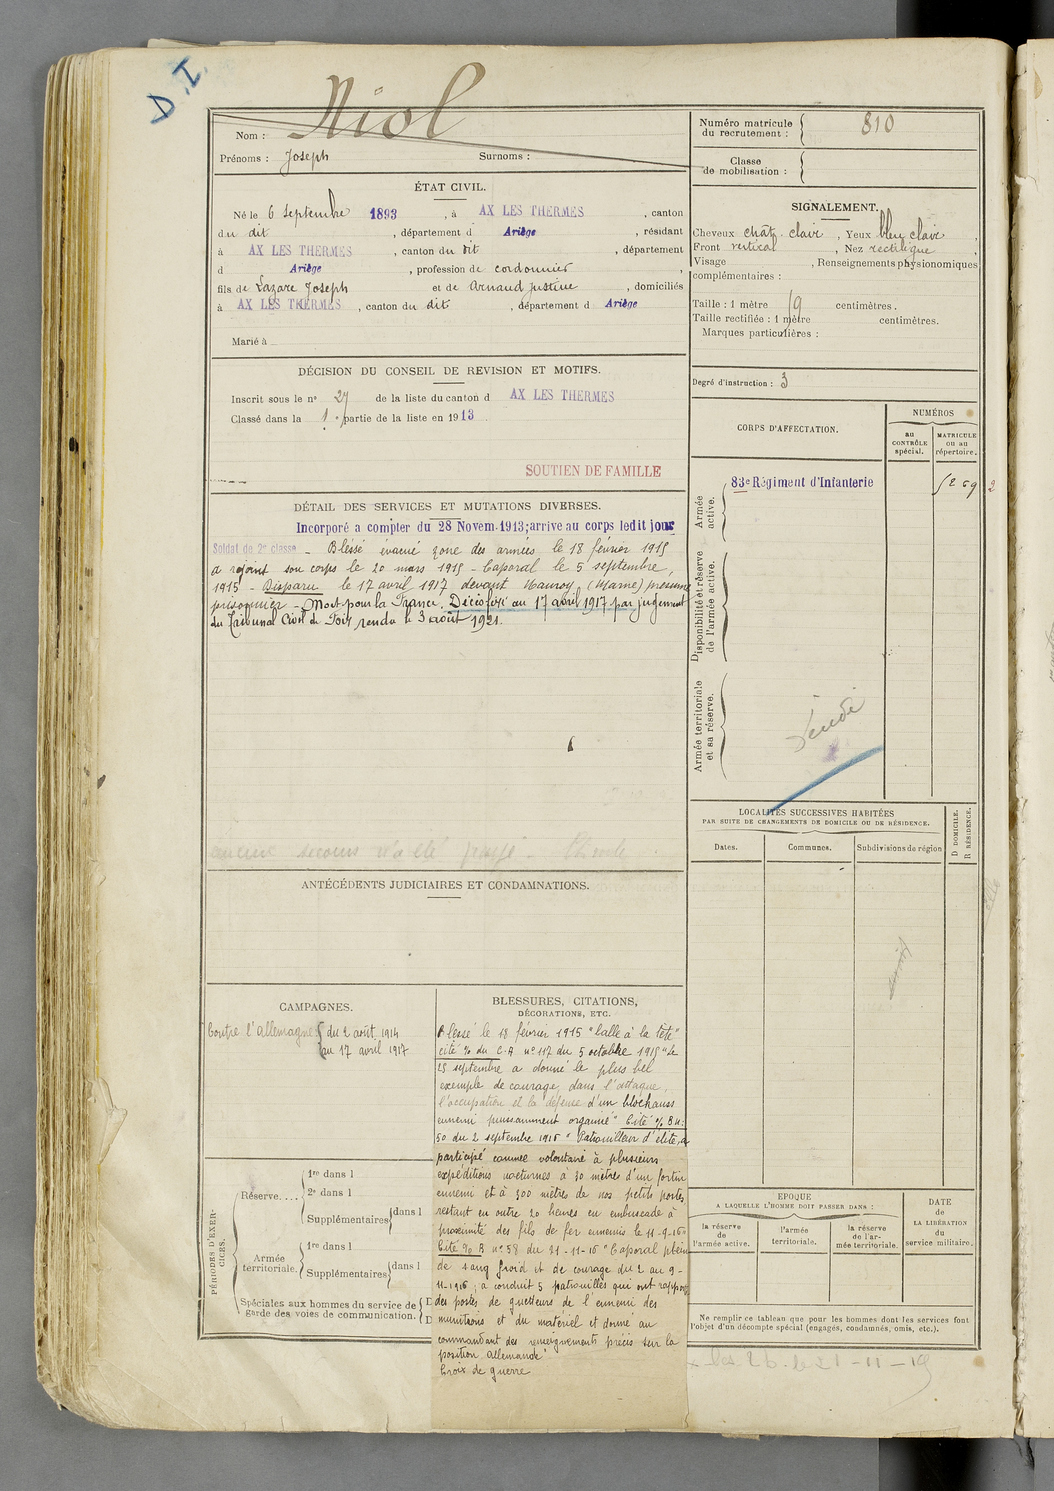 D.I.
Niol
Nom :
Prénoms : Joseph Surnoms :
Numéro matricule
du recrutement : 810
Classe
de mobilisation :
ÉTAT CIVIL.
Né le 6 septembre 1893, à AX LES THERMES, canton
du dit, département d Ariège, résidant
à AX LES THERMES, canton du dit, département
d Ariège, profession de cordonnier,
fils de Lazare Joseph et de Arnaud Justine, domiciliés
à AX LES THERMES, canton du dit, département d Ariège
Marié à
SIGNALEMENT.
Cheveux chât. clair, Yeux bleu clair,
Front vertical, Nez rectiligne,
Visage , Renseignements physionomiques
complémentaires :
Taille : 1 mètre centimètres.
Taille rectifiée : 1 mètre centimètres.
Marques particulières :
Degré d'instruction : 3
DÉCISION DU CONSEIL DE REVISION ET MOTIFS.
Inscrit sous le n° 27 de la liste du canton d AX LES THERMES
Classé dans la 1 partie de la liste en 1913.
SOUTIEN DE FAMILLE
DÉTAIL DES SERVICES ET MUTATIONS DIVERSES.
Incorporé a compter du 28 Novem. 1913; arrive au corps ledit jour
Soldat de 2e classe – Bléssé évacué zone des armées le 18 février 1915
a rejoint son corps le 20 mars 1915 – Caporal le 5 septembre,
1915 – Disparu le 17 avril 1917 devant Mauroy (Marne) présumé
prisonnier – Mort pour la France. Décès fixé au 17 avril 1917 par jugement
du Tribunal Civil de Foix rendu le 3 août 1921.
aucun secours n'a été
ANTÉCÉDENTS JUDICIAIRES ET CONDAMNATIONS.
CORPS D'AFFECTATION.
NUMÉROS
au
CONTRÔLE
spécial.
MATRICULE
ou au
répertoire.
Armée
active.
83e Régiment d'Infanterie
Disponibilité et réserve
de l'armée active.
Armée territoriale
et sa réserve.
LOCALITÉS SUCCESSIVES HABITÉES
PAR SUITE DE CHANGEMENTS DE DOMICILE OU DE RÉSIDENCE.
Dates. Communes. Subdivisions de région
D DOMICILE.
R RÉSIDENCE.
CAMPAGNES.
Contre l'allemagne du 2 août 1914
au 17 avril 1917
BLESSURES, CITATIONS,
DÉCORATIONS, ETC.
Blessé le 18 février 1915 "balle à la tête"
cité % du C.A n° 117 du 5 octobre 1915 "le
25 septembre a donné le plus bel
exemple de courage, dans l'attaque,
l'occupation et la défense d'un blockauss
ennemi puissamment organisé" Cité %
50 du 2 septembre 1916 "Patrouilleur d'élite, a
participé comme volontaire à plusieurs
expéditions nocturnes à 30 mètres d'un fortin
ennemi et à 300 mètres de nos petits postes
restant en outre 20 heures en embuscade à
proximité des fils de fer ennemis le 11-9-16
Cité % B n° 58 du 21-11-16 "Caporal plein
de sang froid et de courage du 2 au 9-
11-1916, a conduit 5 patrouilles qui ont rapporté
des postes de guetteurs de l'ennemi des
munitions et du matériel et donné au
commandant des renseignements précis sur la
position allemande"
Croix de guerre
PÉRIODES D'EXERCICES.
Réserve.... 1re dans l
2e dans l
Supplémentaires dans l
Armée
territoriale. 1re dans l
Supplémentaires dans l
Spéciales aux hommes du service de
garde des voies de communication.
EPOQUE
A LAQUELLE L'HOMME DOIT PASSER DANS :
la réserve
de
l'armée active.
l'armée
territoriale.
la réserve
de l'ar-
mée territoriale.
DATE
de
LA LIBÉRATION
du
service militaire.
Ne remplir ce tableau que pour les hommes dont les services font
l'objet d'un décompte spécial (engagés, condamnés, omis, etc.).
21-11-19